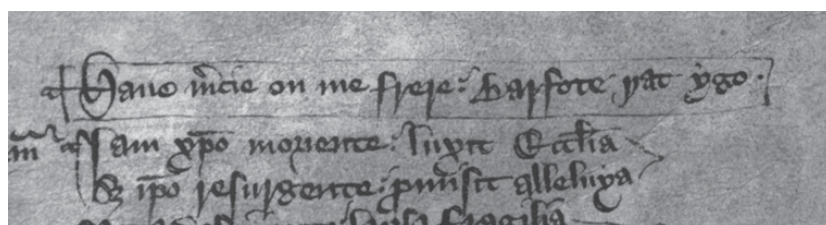 Haue m̅cie on me frere: Barfote þat ygo.
Iam xp̅o moriente: luxit Eccl̅ia
Sꝫ ip̅o resurgente: pm̅sit alleluya